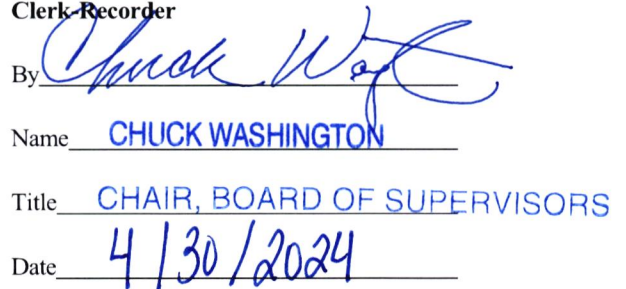 Clerk-Recorder
By Chuck Wa
Name CHUCK WASHINGTON
Title CHAIR, BOARD OF SUPERVISORS
Date 4/30/2024